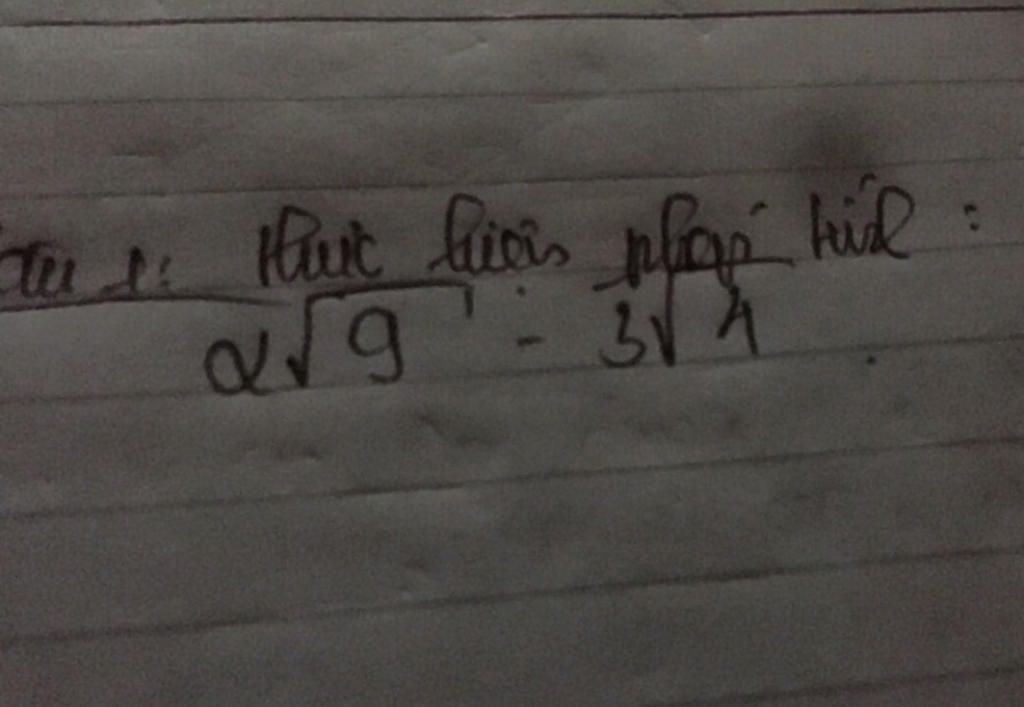 Câu 1: Thực hiện phép tính :
2√9 - 3√4